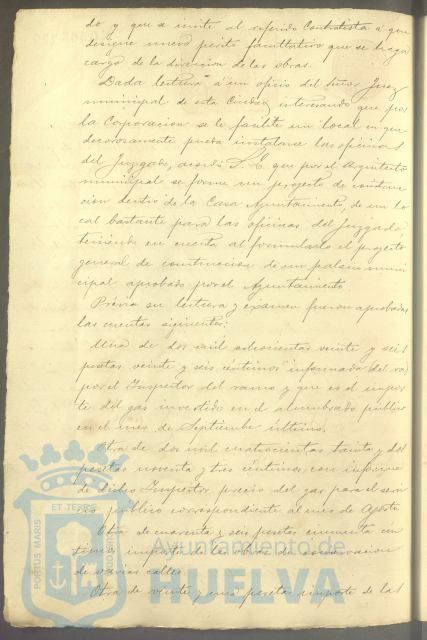 do y que se invite al referido Contratista á que
designe nuevo perito facultativo que se haga
cargo de la direccion de las obras.
Dada lectura á un oficio del Señor Juez
municipal de esta Ciudad, interesando que por
la Corporacion se le facilite un local en que
decorosamente pueda instalarse las oficinas
del Juzgado, acordó S. E. que por el Arquitecto
municipal se forme un proyecto de construc
cion dentro de la Casa Ayuntamiento, de un lo
cal bastante para las oficinas del Juzgado,
teniendo en cuenta al formularlo el proyecto
general de construccion de un palacio muni
cipal aprobado por el Ayuntamiento.
Prévia su lectura y exámen fueron aprobadas
las cuentas siguientes:
Una de dos mil ochocientas veinte y seis
pesetas veinte y seis céntimos informada
por el Inspector del ramo y que es el impor
te del gas invertido en el alumbrado público
en el mes de Septiembre último.
Otra de dos mil cuatrocientas treinta y dos
pesetas noventa y tres céntimos, con informe
de dicho Inspector, precio del gas para el servi
cio público correspondiente al mes de Agosto
Otra de cuarenta y seis pesetas cincuenta cén
timos importe de las obras de
de varias calles.
Otra de veinte y una pesetas importe de las
PORTUS MARIS ET TERRE CUSTODIA
Ayuntamiento de
HUELVA